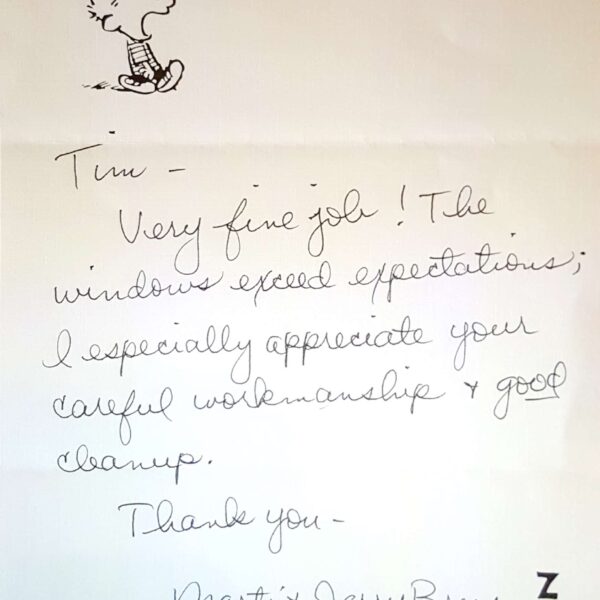 Tim -
Very fine job! The
windows exceed expectations;
I especially appreciate your
careful workmanship + good
cleanup.
Thank you -
Z